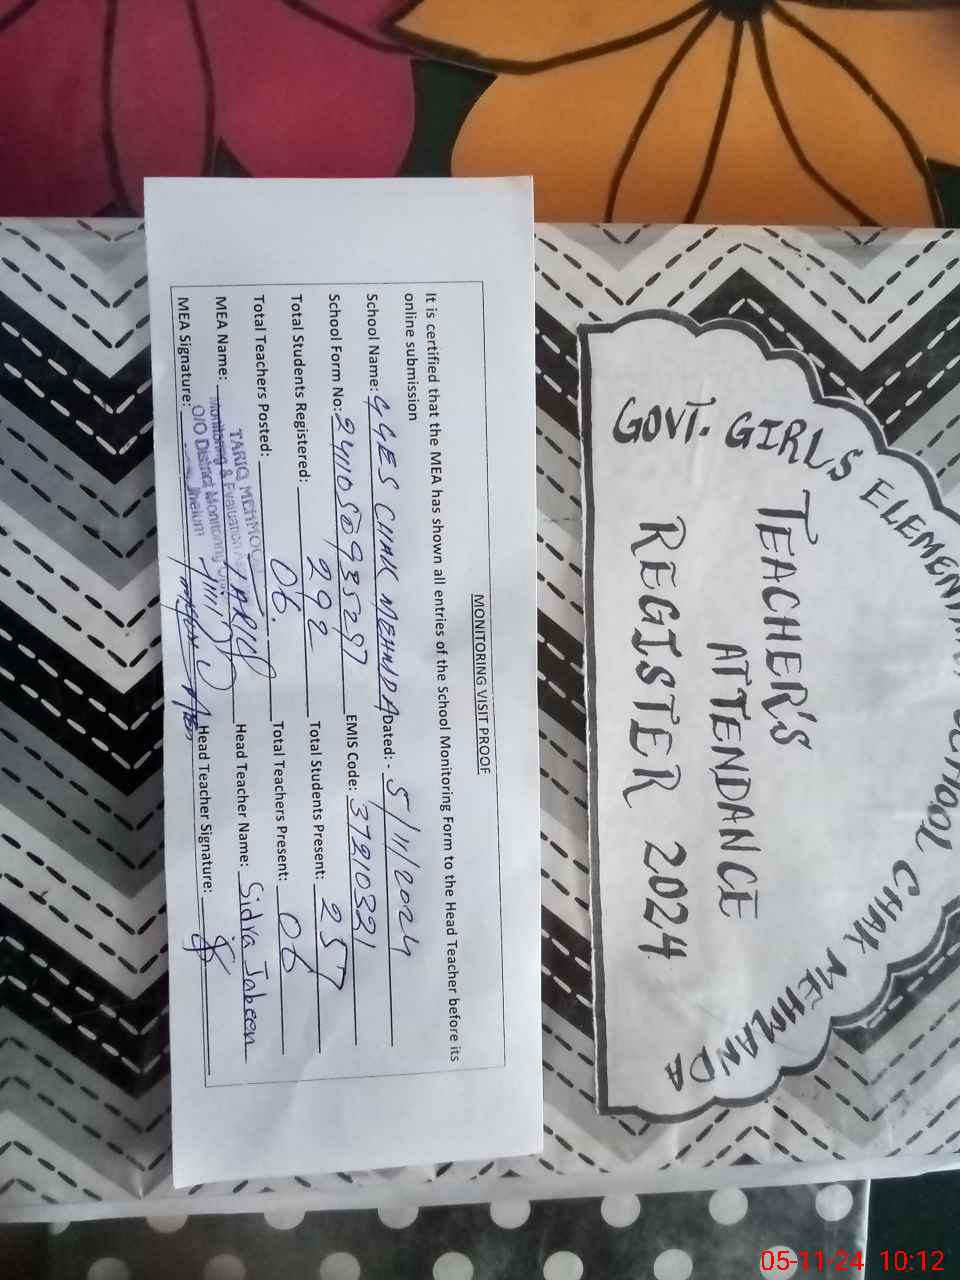 GOVT. GIRLS ELEMENTARY SCHOOL CHAK MEHMANDA
TEACHER'S
ATTENDANCE
REGISTER 2024
MONITORING VISIT PROOF
It is certified that the MEA has shown all entries of the School Monitoring Form to the Head Teacher before its
online submission
School Name: GGES CHAK MEHMDA Dated:- 5/11/2024
School Form No: EMIS Code: 37210321
Total Students Registered: 292 Total Students Present: 257
Total Teachers Posted: 06. Total Teachers Present: 06
MEA Name: TARIQ Head Teacher Name: Sidra Jabeen
MEA Signature: Head Teacher Signature:
TARIQ MEHMOOD
Monitoring & Evaluation
O/O District Monitoring
Jhelum
05-11-24 10:12